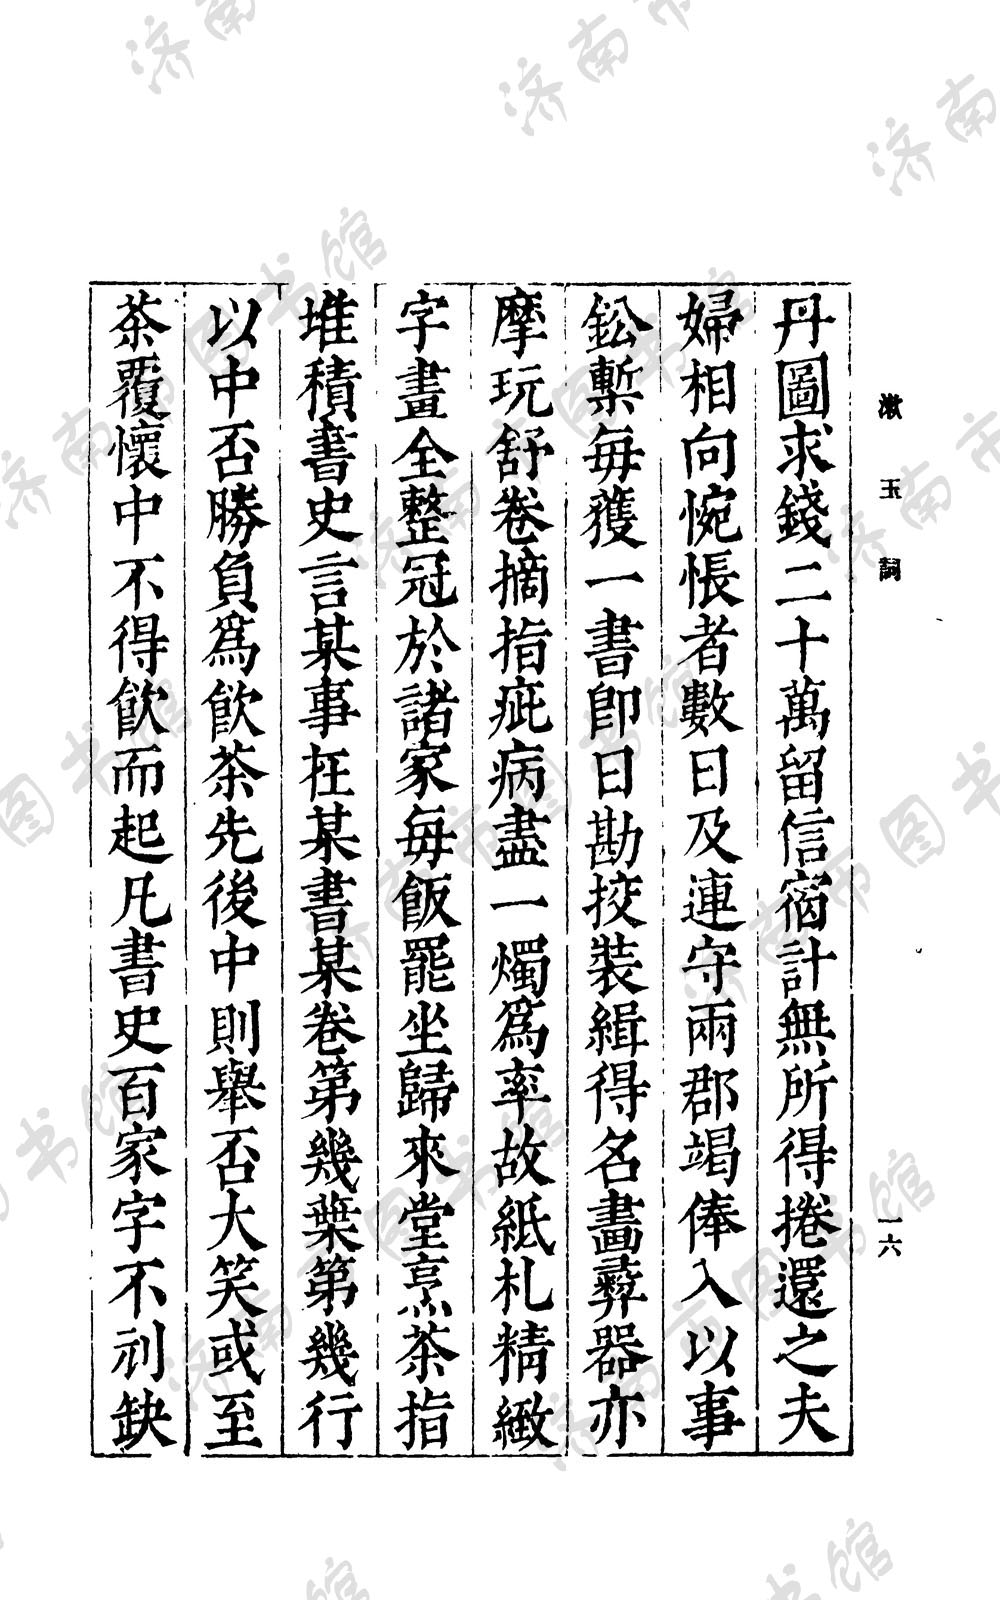 漱玉詞
一六
丹圖求錢二十萬留信宿計無所得捲還之夫
婦相向惋悵者數日及連守兩郡竭俸入以事
鈆槧每獲一書卽日勘挍裝緝得名畫彝器亦
摩玩舒卷摘指疵病盡一燭爲率故紙札精緻
字畫全整冠於諸家每飯罷坐歸來堂烹茶指
堆積書史言某事在某書某卷第幾葉第幾行
以中否勝負爲飮茶先後中則舉否大笑或至
茶覆懷中不得飮而起凡書史百家字不刓缺
濟南市图书馆